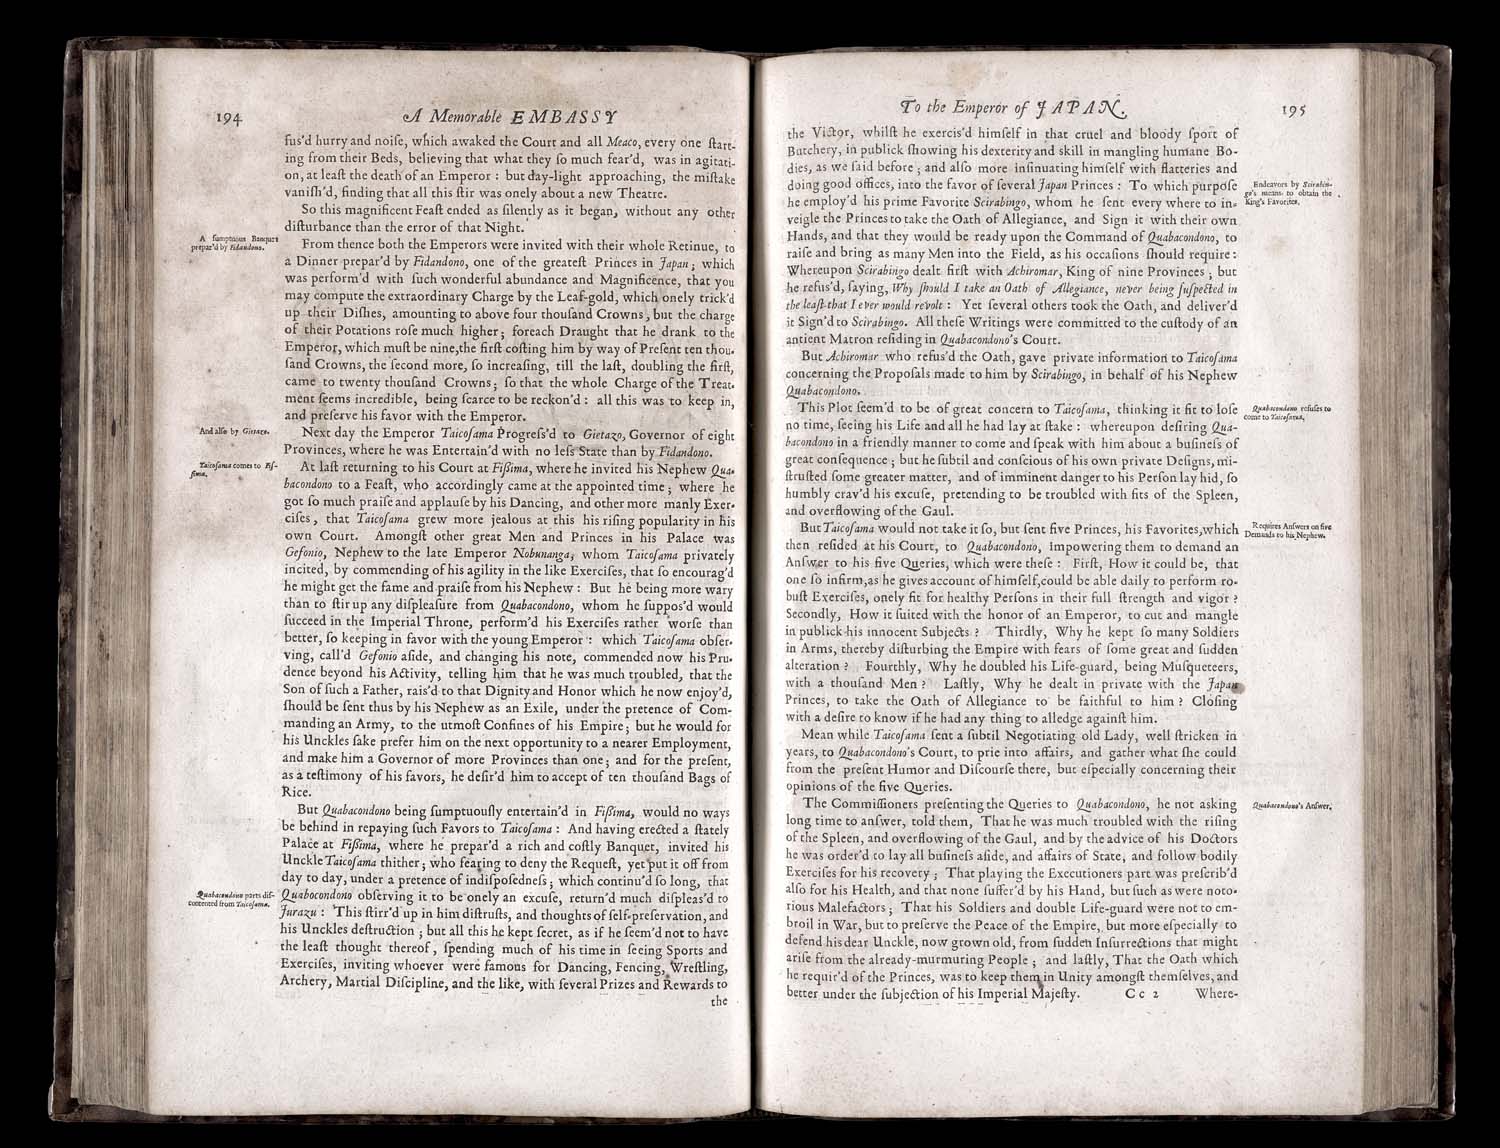 194
A Memorable EMBASSY
fus'd hurry and noiſe, which awaked the Court and all Meaco, every one ſtart-
ing from their Beds, believing that what they ſo much fear'd, was in agitati-
on, at leaſt the death of an Emperor : but day-light approaching, the miſtake
vaniſh'd, finding that all this ſtir was onely about a new Theatre.
So this magnificent Feaſt ended as ſilently as it began, without any other
diſturbance than the error of that Night.
A ſumptuous Banquet
prepar'd by Fidandono.
From thence both the Emperors were invited with their whole Retinue, to
a Dinner prepar'd by Fidandono, one of the greateſt Princes in Japan ; which
was perform'd with ſuch wonderful abundance and Magnificence, that you
may compute the extraordinary Charge by the Leaf-gold, which onely trick'd
up their Diſhes, amounting to above four thouſand Crowns, but the charge
of their Potations roſe much higher ; foreach Draught that he drank to the
Emperor, which muſt be nine,the firſt coſting him by way of Preſent ten thou-
ſand Crowns, the ſecond more, ſo increaſing, till the laſt, doubling the firſt,
came to twenty thouſand Crowns ; ſo that the whole Charge of the Treat-
ment ſeems incredible, being ſcarce to be reckon'd : all this was to keep in,
and preſerve his favor with the Emperor.
And alſo by Gietazo.
Next day the Emperor Taicoſama Progreſs'd to Gietazo, Governor of eight
Provinces, where he was Entertain'd with no leſs State than by Fidandono.
Taicoſama comes to Fiſ-
ſima.
At laſt returning to his Court at Fißima, where he invited his Nephew Qua-
bacondono to a Feaſt, who accordingly came at the appointed time ; where he
got ſo much praiſe and applauſe by his Dancing, and other more manly Exer-
ciſes, that Taicoſama grew more jealous at this his riſing popularity in his
own Court. Amongſt other great Men and Princes in his Palace was
Gefonio, Nephew to the late Emperor Nobunanga; whom Taicoſama privately
incited, by commending of his agility in the like Exerciſes, that ſo encourag'd
he might get the fame and praiſe from his Nephew : But he being more wary
than to ſtir up any diſpleaſure from Quabacondono, whom he ſuppos'd would
ſucceed in the Imperial Throne, perform'd his Exerciſes rather worſe than
better, ſo keeping in favor with the young Emperor : which Taicoſama obſer-
ving, call'd Gefonio aſide, and changing his note, commended now his Pru-
dence beyond his Activity, telling him that he was much troubled, that the
Son of ſuch a Father, rais'd to that Dignity and Honor which he now enjoy'd,
ſhould be ſent thus by his Nephew as an Exile, under the pretence of Com-
manding an Army, to the utmoſt Confines of his Empire ; but he would for
his Unckles ſake prefer him on the next opportunity to a nearer Employment,
and make him a Governor of more Provinces than one ; and for the preſent,
as a teſtimony of his favors, he deſir'd him to accept of ten thouſand Bags of
Rice.
But Quabacondono being ſumptuouſly entertain'd in Fißima, would no ways
be behind in repaying ſuch Favors to Taicoſama : And having erected a ſtately
Palace at Fißima, where he prepar'd a rich and coſtly Banquet, invited his
Unckle Taicoſama thither ; who fearing to deny the Requeſt, yet put it off from
day to day, under a pretence of indiſpoſedneſs ; which continu'd ſo long, that
Quabacondono parts diſ-
contented from Taicoſama.
Quabocondono obſerving it to be onely an excuſe, return'd much diſpleas'd to
Jurazu : This ſtirr'd up in him diſtruſts, and thoughts of ſelf-preſervation, and
his Unckles deſtruction ; but all this he kept ſecret, as if he ſeem'd not to have
the leaſt thought thereof, ſpending much of his time in ſeeing Sports and
Exerciſes, inviting whoever were famous for Dancing, Fencing, Wreſtling,
Archery, Martial Diſcipline, and the like, with ſeveral Prizes and Rewards to
the
To the Emperor of JAPAN.
195
the Victor, whilſt he exercis'd himſelf in that cruel and bloody ſport of
Butchery, in publick ſhowing his dexterity and skill in mangling humane Bo-
dies, as we ſaid before ; and alſo more inſinuating himſelf with flatteries and
doing good offices, into the favor of ſeveral Japan Princes : To which purpoſe
he employ'd his prime Favorite Scirabingo, whom he ſent every where to in-
veigle the Princes to take the Oath of Allegiance, and Sign it with their own
Hands, and that they would be ready upon the Command of Quabacondono, to
raiſe and bring as many Men into the Field, as his occaſions ſhould require :
Whereupon Scirabingo dealt firſt with Achiromar, King of nine Provinces ; but
he refus'd, ſaying, Why ſhould I take an Oath of Allegiance, never being ſuſpected in
the leaſt that I ever would revolt : Yet ſeveral others took the Oath, and deliver'd
it Sign'd to Scirabingo. All theſe Writings were committed to the cuſtody of an
antient Matron reſiding in Quabacondono's Court.
Endeavors by Scirabin-
go's means to obtain the
King's Favorites.
But Achiromar who refus'd the Oath, gave private information to Taicoſama
concerning the Propoſals made to him by Scirabingo, in behalf of his Nephew
Quabacondono.
This Plot ſeem'd to be of great concern to Taicoſama, thinking it fit to loſe
no time, ſeeing his Life and all he had lay at ſtake : whereupon deſiring Qua-
bacondono in a friendly manner to come and ſpeak with him about a buſineſs of
great conſequence ; but he ſubtil and conſcious of his own private Deſigns, mi-
ſtruſted ſome greater matter, and of imminent danger to his Perſon lay hid, ſo
humbly crav'd his excuſe, pretending to be troubled with fits of the Spleen,
and overflowing of the Gaul.
Quabacondono refuſes to
come to Taicoſama.
But Taicoſama would not take it ſo, but ſent five Princes, his Favorites,which
then reſided at his Court, to Quabacondono, impowering them to demand an
Anſwer to his five Queries, which were theſe : Firſt, How it could be, that
one ſo infirm,as he gives account of himſelf,could be able daily to perform ro-
buſt Exerciſes, onely fit for healthy Perſons in their full ſtrength and vigor ?
Secondly, How it ſuited with the honor of an Emperor, to cut and mangle
in publick his innocent Subjects ? Thirdly, Why he kept ſo many Soldiers
in Arms, thereby diſturbing the Empire with fears of ſome great and ſudden
alteration ? Fourthly, Why he doubled his Life-guard, being Muſqueteers,
with a thouſand Men ? Laſtly, Why he dealt in private with the Japan
Princes, to take the Oath of Allegiance to be faithful to him ? Cloſing
with a deſire to know if he had any thing to alledge againſt him.
Requires Anſwers on five
Demands to his Nephew.
Mean while Taicoſama ſent a ſubtil Negotiating old Lady, well ſtricken in
years, to Quabacondono's Court, to prie into affairs, and gather what ſhe could
from the preſent Humor and Diſcourſe there, but eſpecially concerning their
opinions of the five Queries.
The Commiſſioners preſenting the Queries to Quabacondono, he not asking
long time to anſwer, told them, That he was much troubled with the riſing
of the Spleen, and overflowing of the Gaul, and by the advice of his Doctors
he was order'd to lay all buſineſs aſide, and affairs of State, and follow bodily
Exerciſes for his recovery ; That playing the Executioners part was preſcrib'd
alſo for his Health, and that none ſuffer'd by his Hand, but ſuch as were noto-
rious Malefactors ; That his Soldiers and double Life-guard were not to em-
broil in War, but to preſerve the Peace of the Empire, but more eſpecially to
defend his dear Unckle, now grown old, from ſudden Inſurrections that might
ariſe from the already-murmuring People ; and laſtly, That the Oath which
he requir'd of the Princes, was to keep them in Unity amongſt themſelves, and
better under the ſubjection of his Imperial Majeſty.
Quabacondono's Anſwer.
Cc 2
Where-